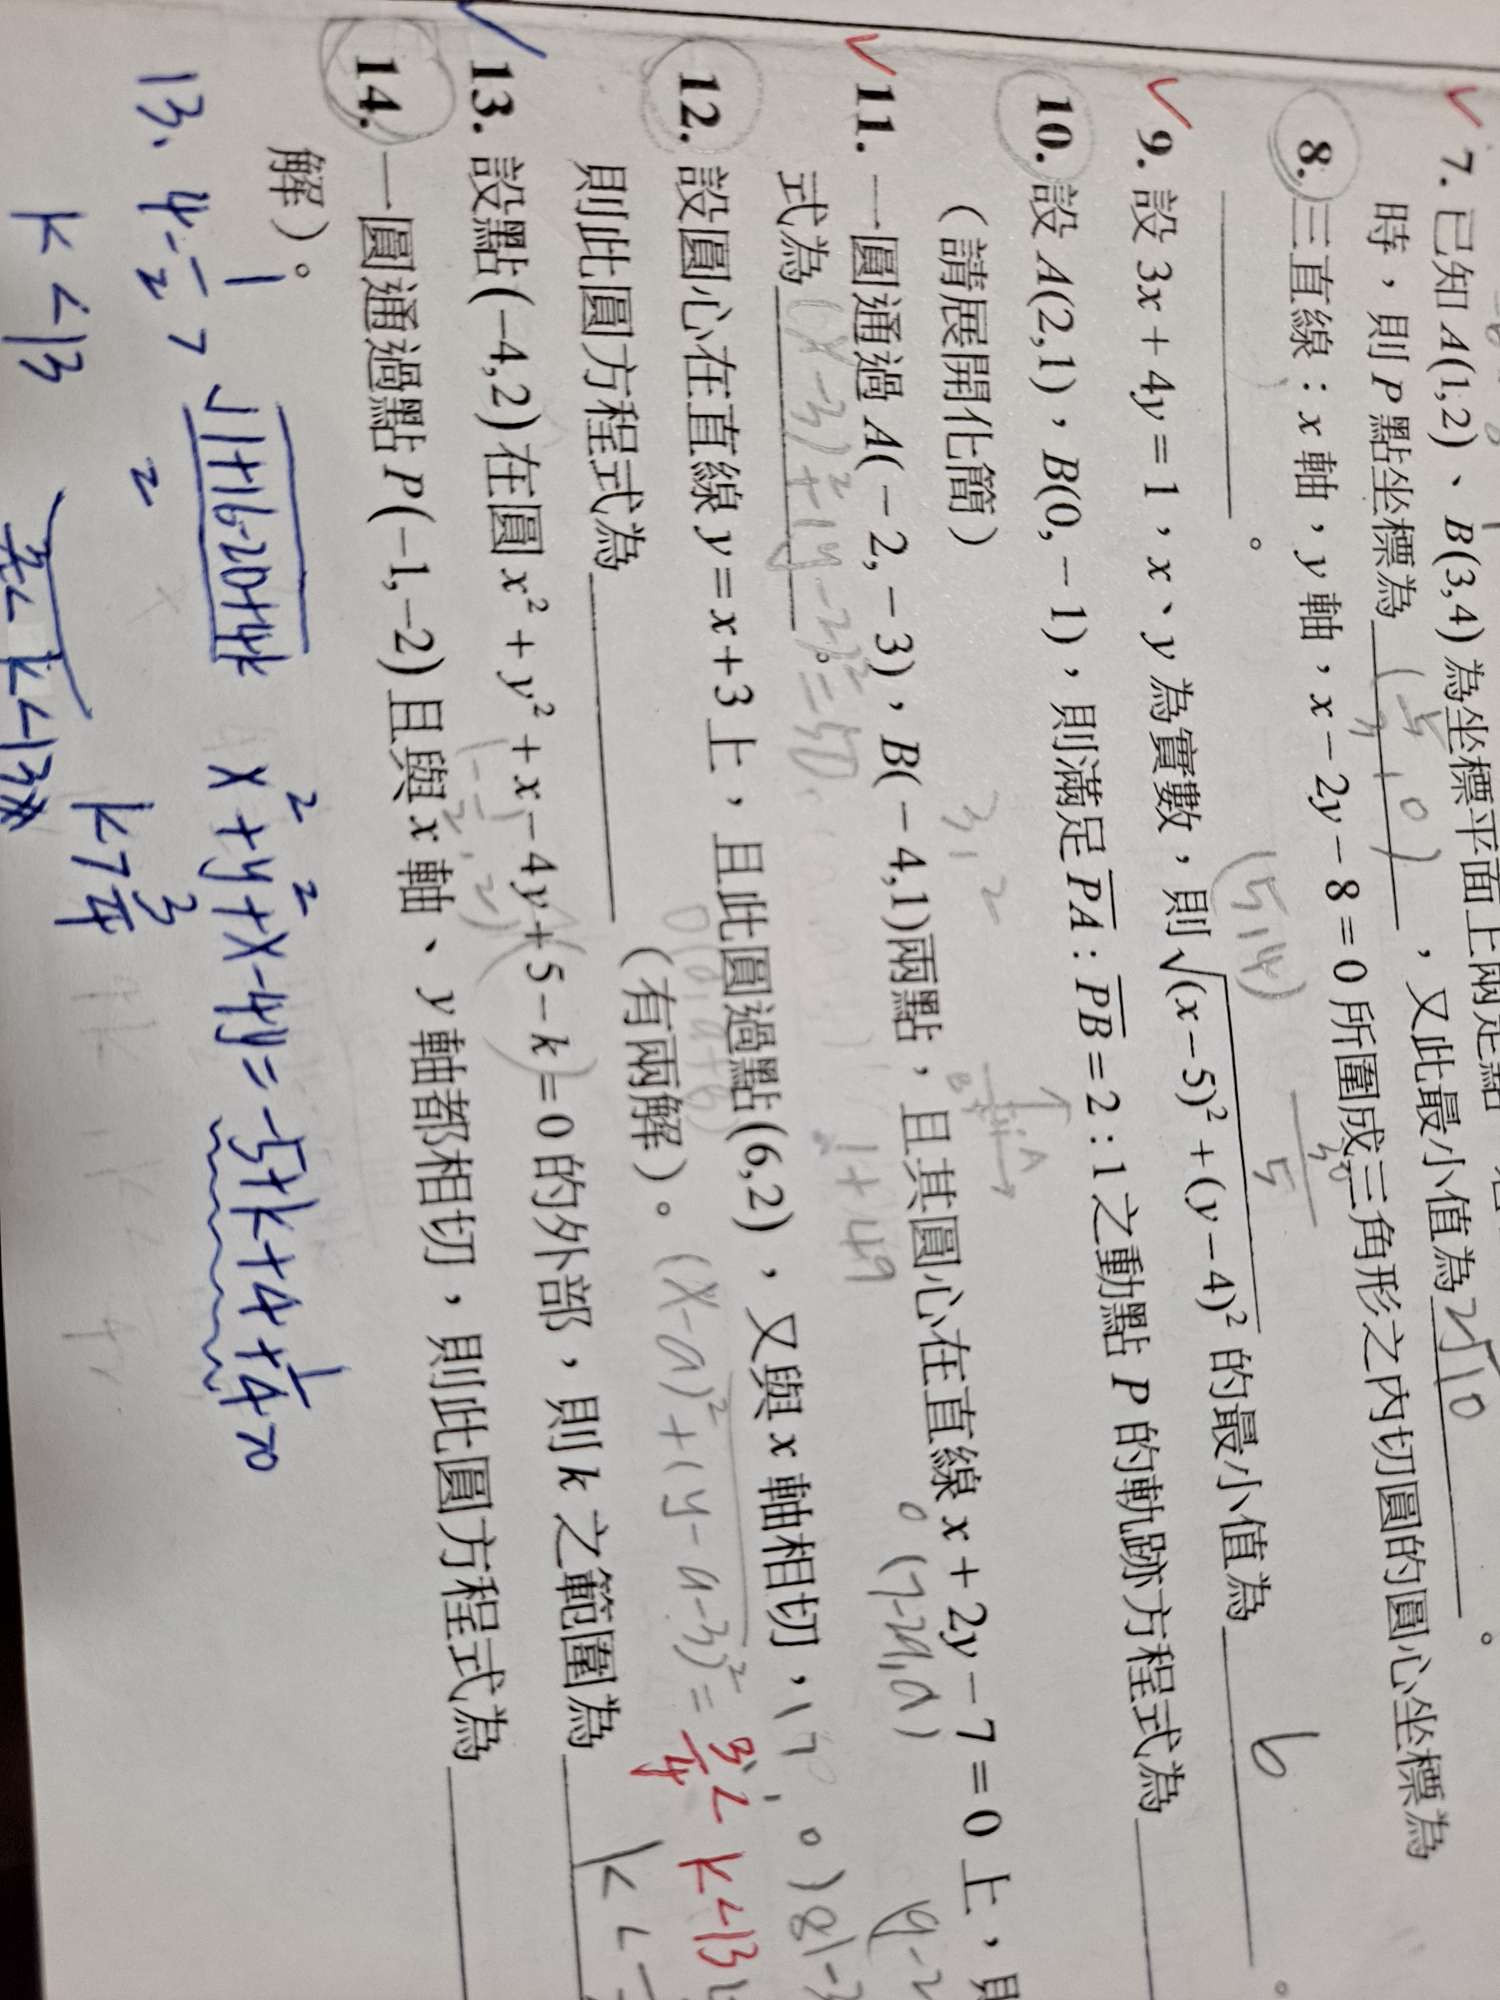 7. 已知 A(1,2)、B(3,4) 為坐標平面上兩定點
時，則 P 點坐標為 (5/3, 0)，又此最小值為 2√10。
8. 三直線：x 軸，y 軸，x − 2y − 8 = 0 所圍成三角形之內切圓的圓心坐標為
。
(5,4)
9. 設 3x + 4y = 1，x、y 為實數，則 √((x − 5)² + (y − 4)²) 的最小值為 6。
10. 設 A(2,1)，B(0, −1)，則滿足 PA : PB = 2 : 1 之動點 P 的軌跡方程式為
（請展開化簡）
3, 2
11. 一圓通過 A(−2, −3)，B(−4,1)兩點，且其圓心在直線 x + 2y − 7 = 0 上，則
式為 (x-3)²+(y-2)²=50。
1+49
O(7-2a,a)
12. 設圓心在直線 y = x + 3 上，且此圓過點(6,2)，又與 x 軸相切，
則此圓方程式為（有兩解）。
(x-a)²+(y-a-3)²=
13. 設點(−4,2) 在圓 x² + y² + x − 4y + 5 − k = 0 的外部，則 k 之範圍為
3/4 < k < 13
14. 一圓通過點 P(−1, −2) 且與 x 軸、y 軸都相切，則此圓方程式為
解）。
13. 4-1/2 > √1+16-20+4k / 2
x²+y²+x-4y=-5+k+4+1/4>0
k<13
k>3/4
3/4<k<13